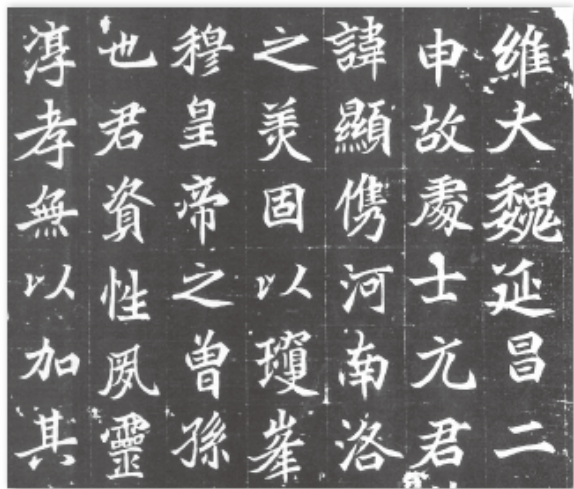 維大魏延昌二
申故處士元君
諱顯儁河南洛
之美固以瓊峯
穆皇帝之曾孫
也君資性夙靈
淳孝無以加其